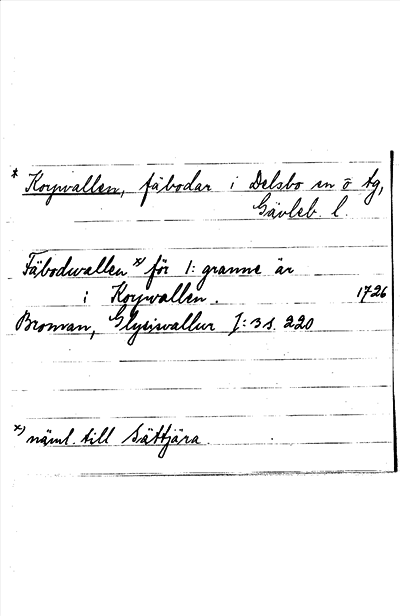 * Korpwallen, fäbodar i Delsbo sn ö tg,
Gävleb. l.
Fäbodwallen x) för 1: granne är
i Korpwallen. 1726
Broman, Glysisvallur I: 3 s. 220
x) näml. till Sättjära